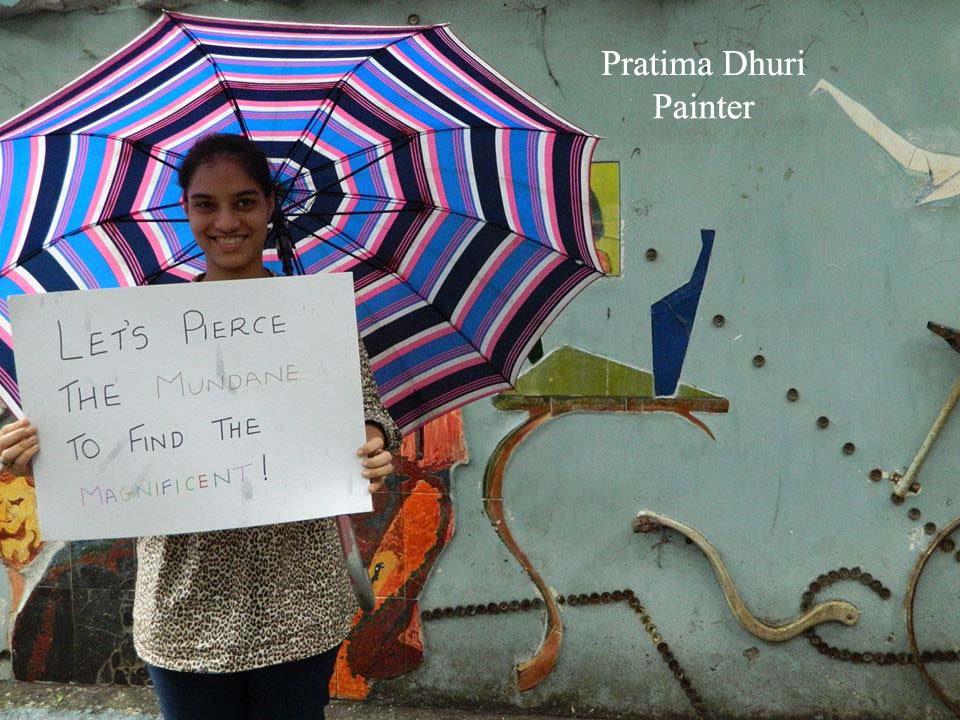 Pratima Dhuri
Painter
LET'S PIERCE
THE MUNDANE
TO FIND THE
MAGNIFICENT!